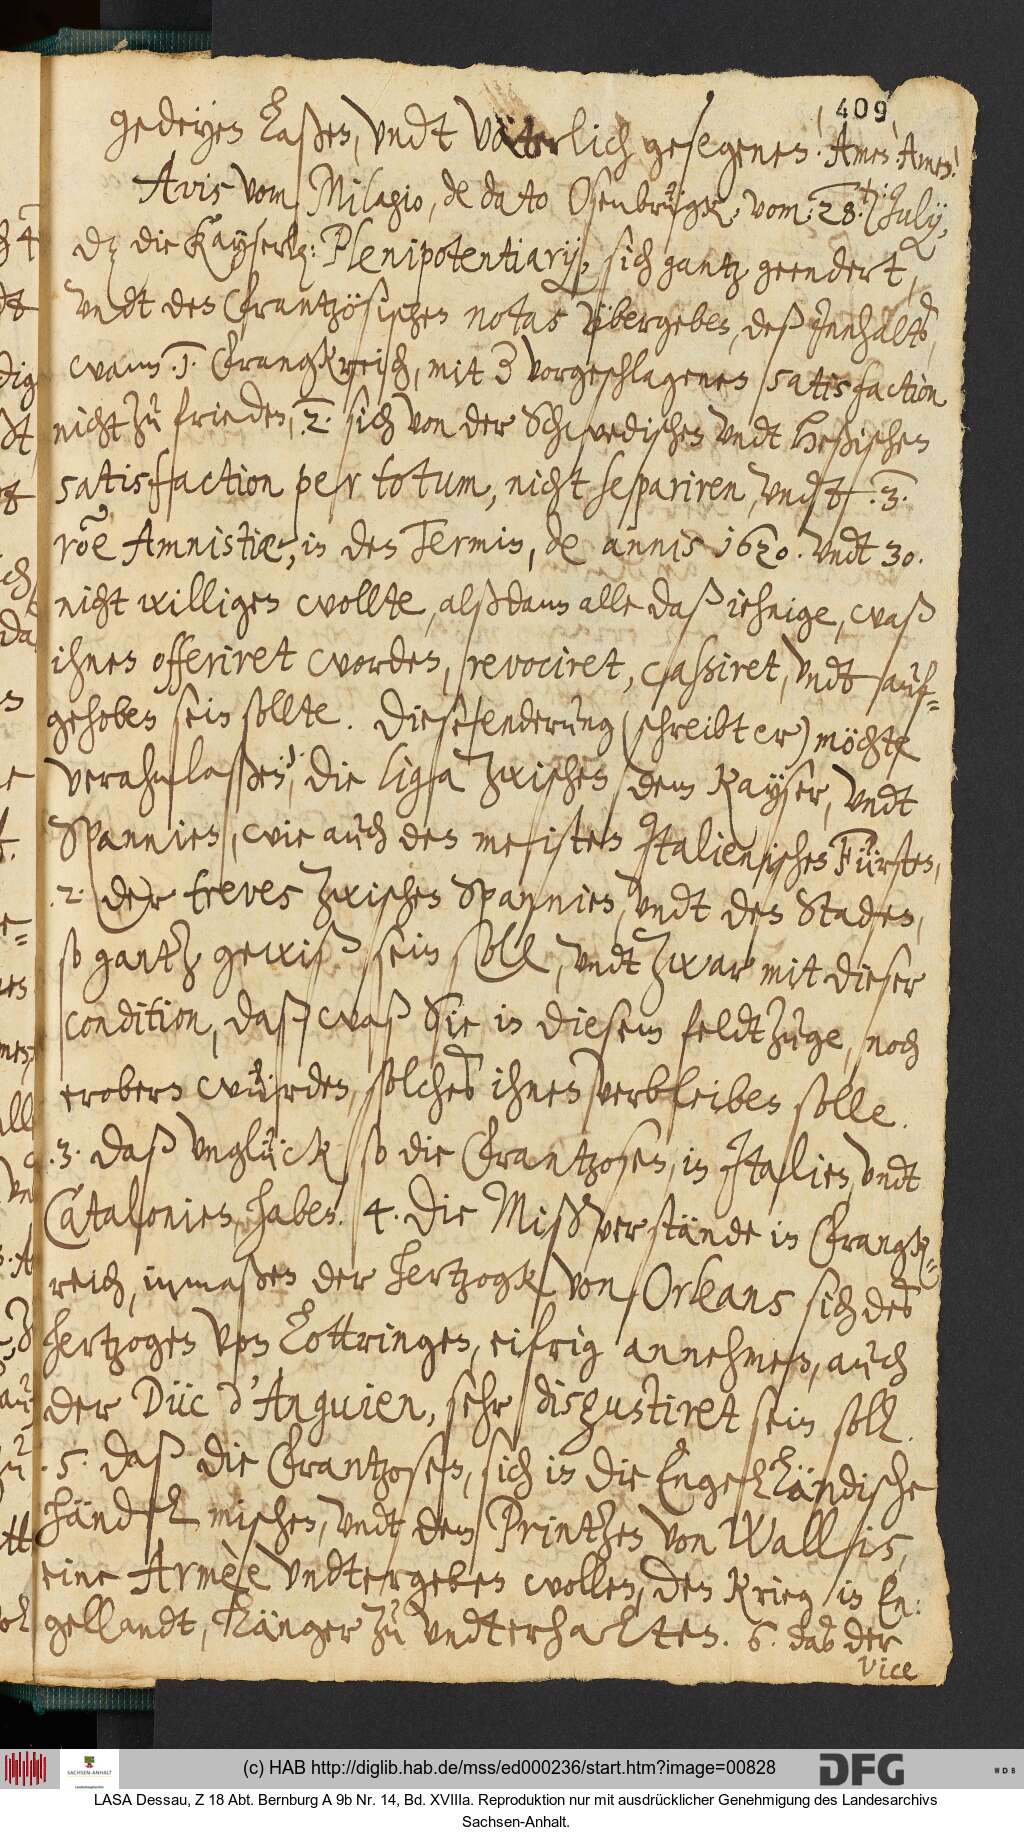 409
gedeyen laßen, vndt Väterlich gesegenen. Amen Amen!
Avis vom Milagio, de dato Osenbrügk, vom: 28. July,
dz die Kayserl: Plenipotentiarij, sich gantz geendert,
vndt den Frantzösischen notas übergeben, deß Innhalts,
wann .1. Frangkreich, mit 3 vorgeschlagenen satisfaction
nicht zu frieden, .2. sich von der Schwedischen vndt Heßischen
satisfaction per totum, nicht separiren, vndt .3.
röe Amnistiæ, in den Termin, de annis 1620. vndt 30.
nicht willigen wollte, alßdann alle daß iehnige, waß
ihnen offeriret worden, revociret, cassiret, vndt auf-
gehoben sein sollte. Diese enderung (schreibt er) möchte
verahnlaßen, 1. die liga zwischen dem Kayser, vndt
Spannien, wie auch den meisten Italienischen Fürsten,
.2. der treves zwischen Spannien, vndt den Staden,
so gantz gewiß sein soll, vndt zwar mit dieser
condition, daß waß Sie in diesem feldtzuge, noch
erobern würden, solches ihnen verbleiben solle.
.3. daß vnglück so die Frantzosen, in Italien, vndt
Catalonien, haben. 4. Die Mißverstände in Frangk-
reich, inmaßen der Hertzogk von Orleans sich des
Hertzogen von Lottringen, eifrig annehmen, auch
der Düc d'Anguien, sehr disgustiret sein soll.
.5. daß die Frantzosen, sich in die Engelländische
händel mischen, vndt dem Printzen von Wallis,
eine Armèe vndtergeben wollen, den Krieg in En:
gellandt, länger zu vndterhalten. 6. das der
vice
(c) HAB http://diglib.hab.de/mss/ed000236/start.htm?image=00828
SACHSEN-ANHALT
DFG
WDB
LASA Dessau, Z 18 Abt. Bernburg A 9b Nr. 14, Bd. XVIIIa. Reproduktion nur mit ausdrücklicher Genehmigung des Landesarchivs
Sachsen-Anhalt.